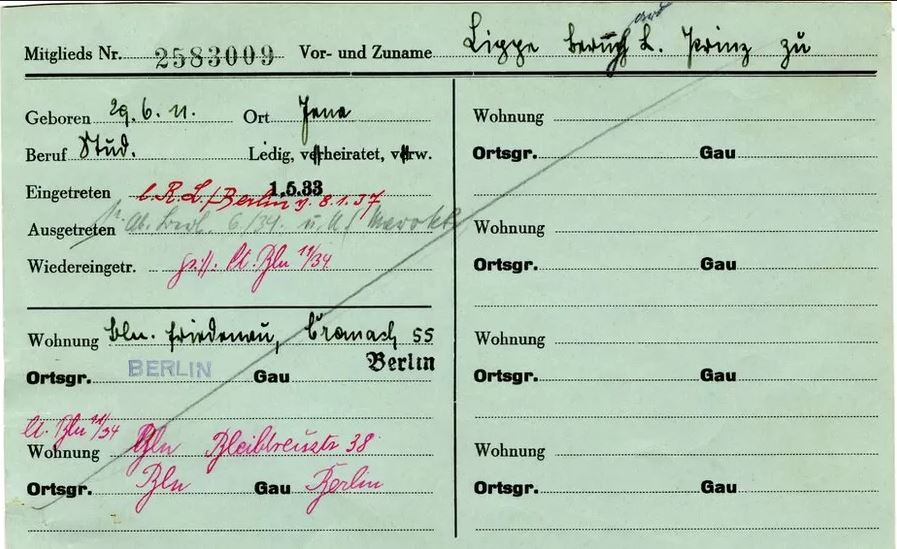 Mitglieds Nr. 2583009 Vor- und Zuname Lippe Bernhard L. Prinz zu
Geboren 29.6.11. Ort Jena
Beruf Stud. Ledig, verheiratet, verw.
Eingetreten 1.5.33
l. R.L./Berlin v. 8.1.37
Ausgetreten 6/34. u.
Wiedereingetr. lt. Bln 11/34
Wohnung Bln. Friedenau, Cranach 55
Ortsgr. BERLIN Gau Berlin
lt. Bln 11/34
Wohnung Bln Bleibtreustr 38
Ortsgr. Bln Gau Berlin
Wohnung
Ortsgr. Gau
Wohnung
Ortsgr. Gau
Wohnung
Ortsgr. Gau
Wohnung
Ortsgr. Gau